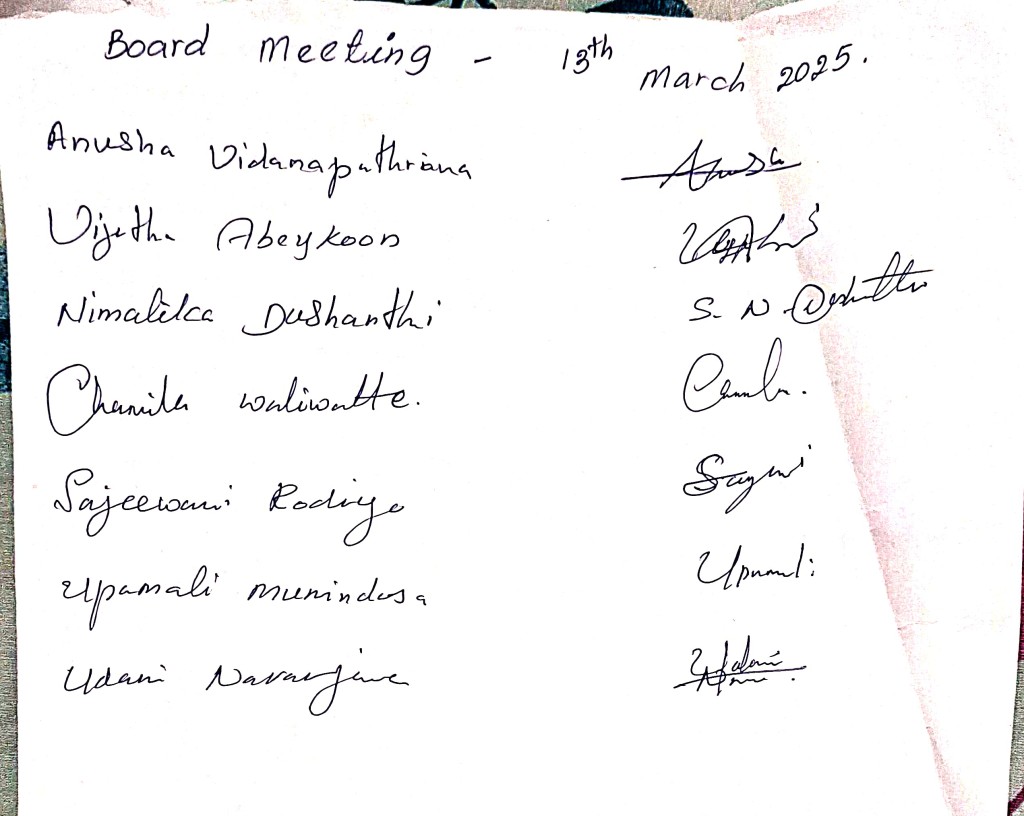 Board Meeting - 13th March 2025.
Anusha Vidanapathirana Anusa
Vijetha Abeykoon
Nimalika Dushanthi S. N. Dushanthi
Chamila waliwatte.
Sajeewani Rodrigo
Upamali munindasa Upamali
Udani Navanjana Udani